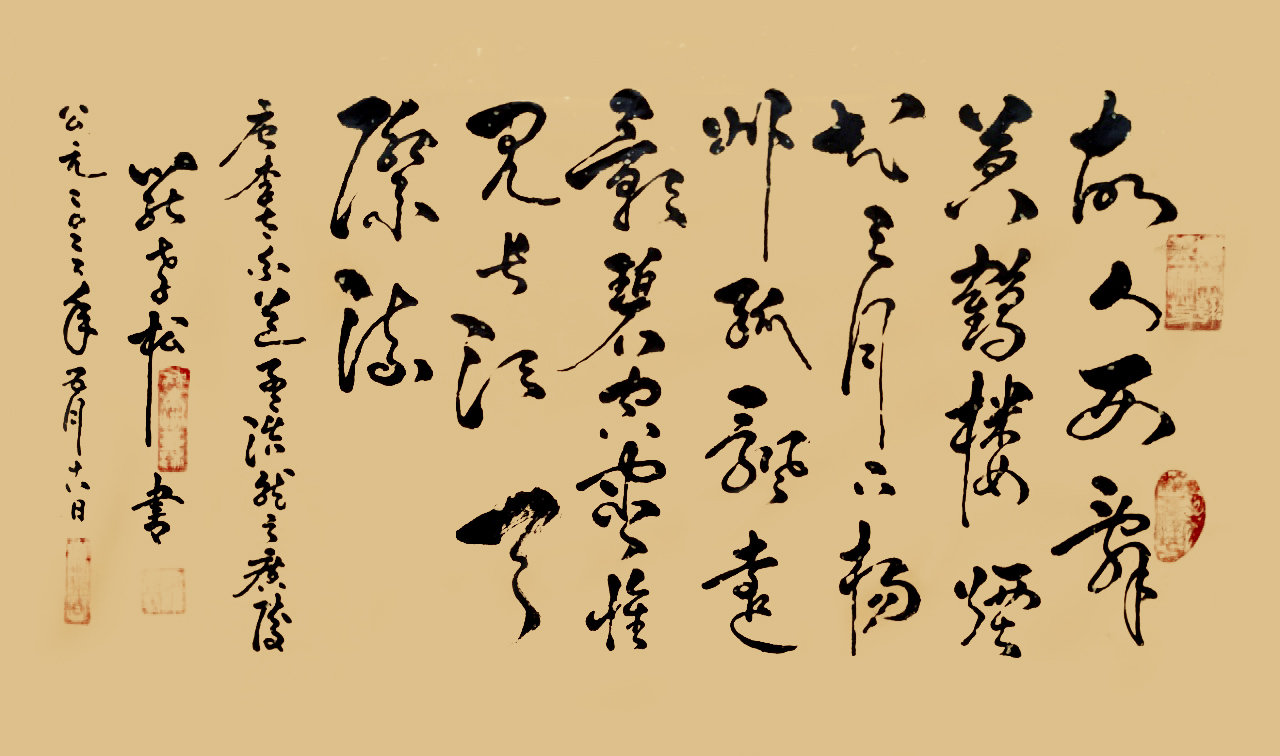 故人西辭
黄鶴楼煙
花三月下楊
州孤颿遠
影碧空盡惟
見長江天
際流
唐李太白送孟浩然之廣陵
熊孝松書
公元二〇二二年五月十八日